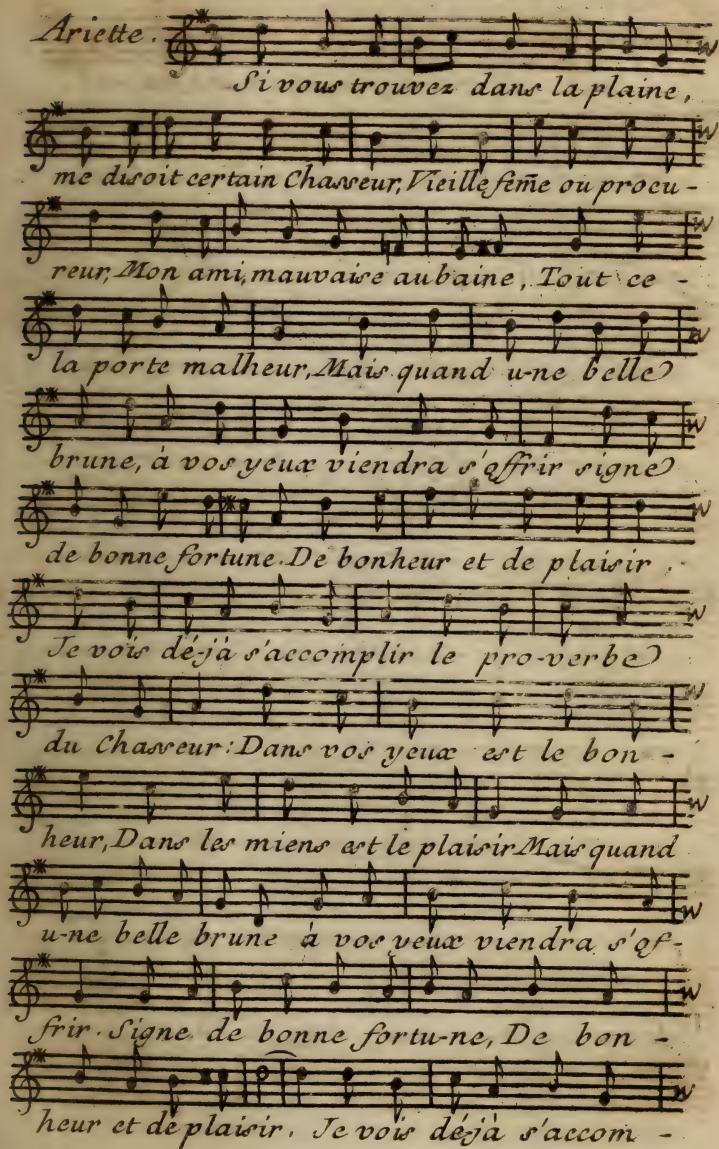 Ariette.
Si vous trouvez dans la plaine,
me disoit certain Chasseur, Vieille fem̃e ou procu-
reur, Mon ami, mauvaise aubaine, Tout ce-
la porte malheur, Mais quand u-ne belle
brune, à vos yeux viendra s'offrir signe
de bonne fortune. De bonheur et de plaisir.
Je vois dé-jà s'accomplir le pro-verbe
du Chasseur: Dans vos yeux est le bon-
heur, Dans les miens est le plaisir Mais quand
u-ne belle brune à vos yeux viendra s'of-
frir. Signe de bonne fortu-ne, De bon-
heur et de plaisir. Je vois dé-jà s'accom-